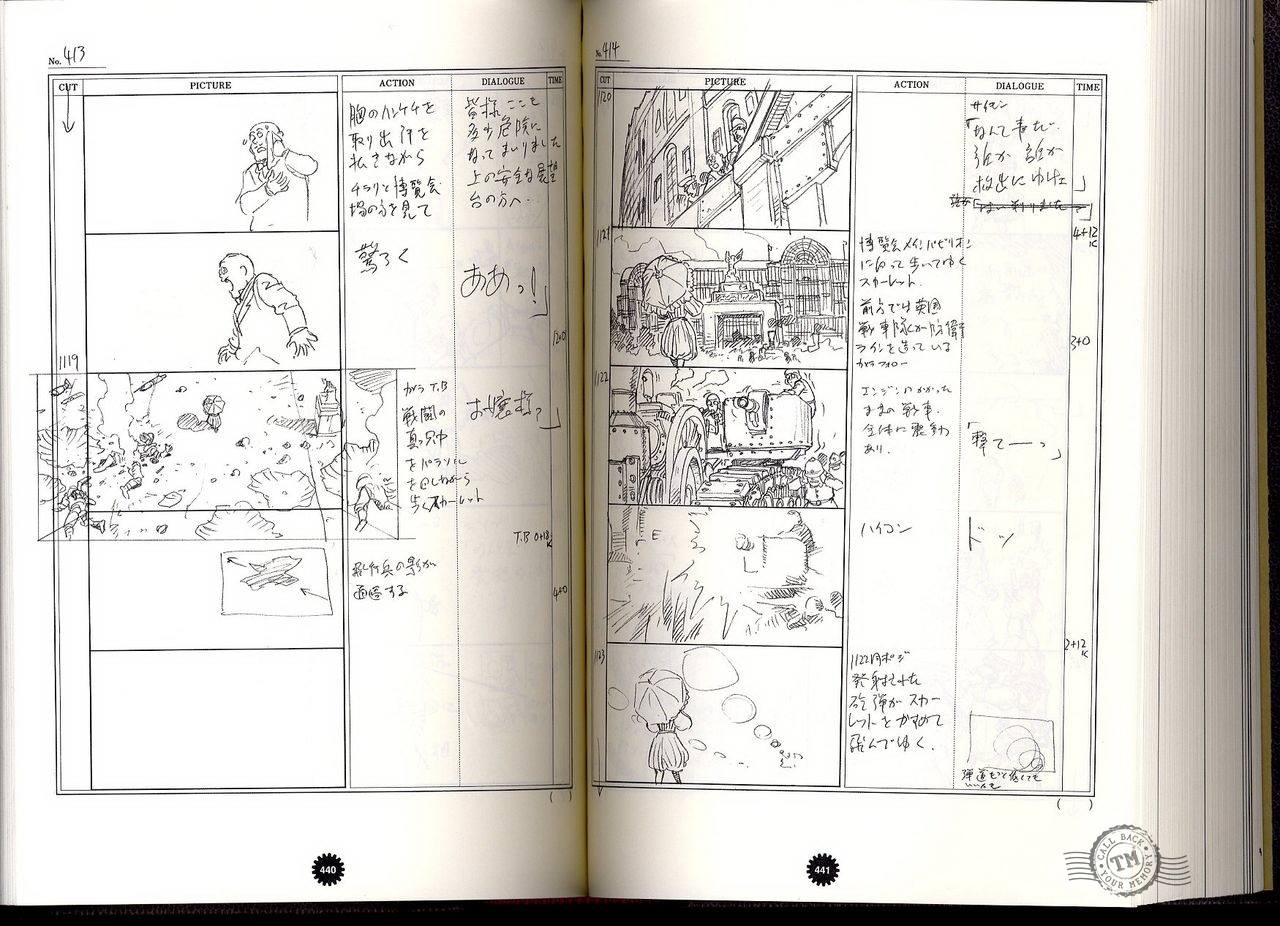 No. 413
CUT
PICTURE
ACTION
DIALOGUE
TIME
胸のハンケチを
取り出し汗を
拭きながら
チラリと博覧会
場の方を見て
皆様 ここも
多少危険に
なってまいりました
上の安全な展望
台の方へ…
驚ろく
ああっ!」
12+0
1119
ガラ T.B
戦闘の
真っ只中
をパラソル
を回しながら
歩くスカーレット
お嬢様っ」
T.B 0+12K
飛行兵の影が
通過する
4+0
440
No. 414
CUT
PICTURE
ACTION
DIALOGUE
TIME
1120
サイモン
「なんて事だ…
誰か 誰か
救出にゆけェ」
4+12K
1121
博覧会メインパビリオン
に向って歩いてゆく
スカーレット.
前方では英国
戦車隊が防衛
ラインを造っている
ガラフォロー
3+0
1122
エンジンのかかった
ままの戦車.
全体に震動
あり.
「撃てーっ」
E
ハイコン
ドッ
2+12K
1123
1122同ポジ
発射された
砲弾がスカー
レットをかすめて
飛んでゆく.
弾道もっと低くても
いいんも
441
CALL BACK
TM
YOUR MEMORY